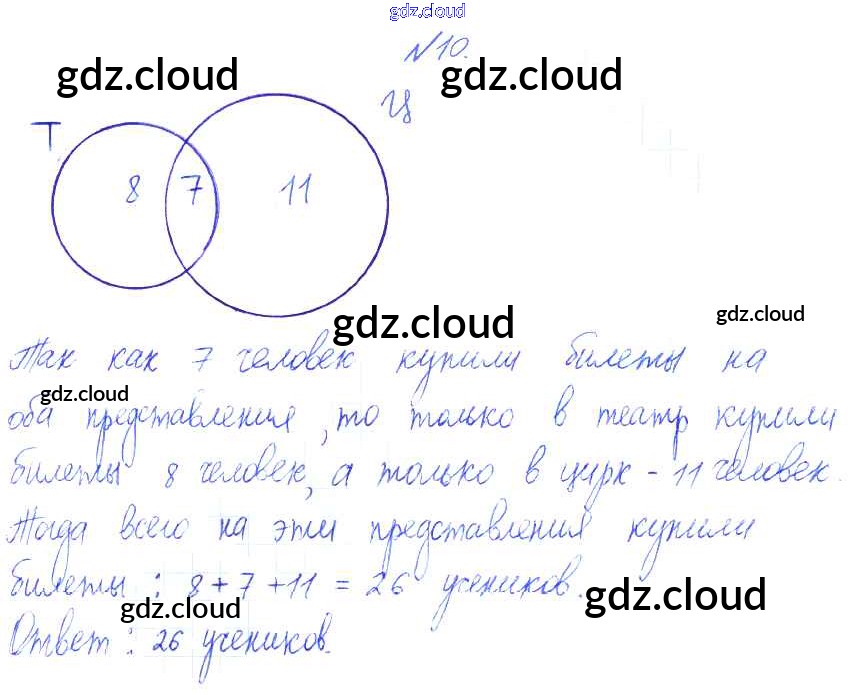 gdz.cloud
№10.
gdz.cloud gdz.cloud
Т Ц
8 7 11
gdz.cloud
gdz.cloud
Так как 7 человек купили билеты на
gdz.cloud
оба представления, то только в театр купили
билеты 8 человек, а только в цирк - 11 человек.
Тогда всего на эти представления купили
билеты: 8 + 7 + 11 = 26 учеников.
gdz.cloud
gdz.cloud
Ответ: 26 учеников.